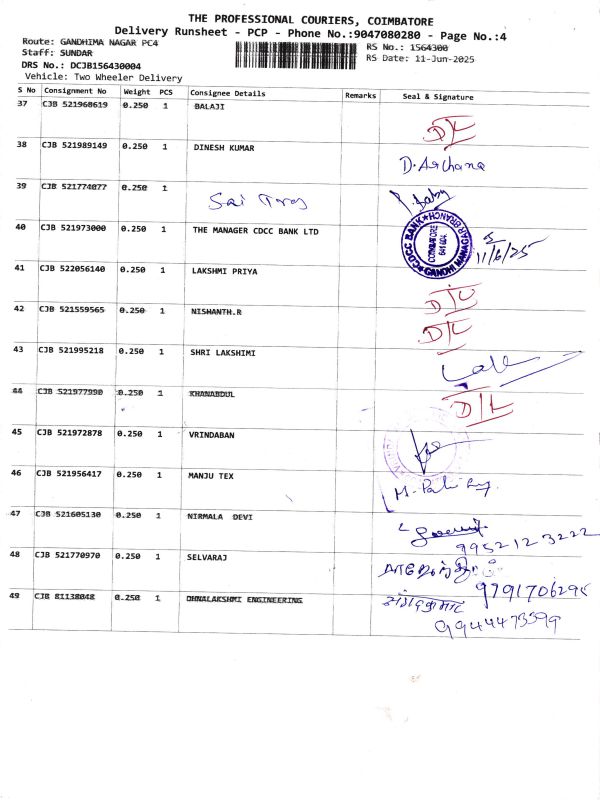 THE PROFESSIONAL COURIERS, COIMBATORE
Delivery Runsheet - PCP - Phone No.:9047080280 - Page No.:4
Route: GANDHIMA NAGAR PC4
RS No.: 1564300
Staff: SUNDAR
RS Date: 11-Jun-2025
DRS No.: DCJB156430004
Vehicle: Two Wheeler Delivery
S No Consignment No Weight PCS Consignee Details Remarks Seal & Signature
37 CJB 521968619 0.250 1 BALAJI D/L
38 CJB 521989149 0.250 1 DINESH KUMAR D.Archana
39 CJB 521774077 0.250 1 Sai P. Baby
40 CJB 521973000 0.250 1 THE MANAGER CDCC BANK LTD
CDCC BANK GANDHI MANAGAR BRANCH COIMBATORE 641004 11/6/25
41 CJB 522056140 0.250 1 LAKSHMI PRIYA D/L
42 CJB 521559565 0.250 1 NISHANTH.R D/L
43 CJB 521995218 0.250 1 SHRI LAKSHIMI
44 CJB 521977990 0.250 1 KHANABDUL D/L
45 CJB 521972878 0.250 1 VRINDABAN
46 CJB 521956417 0.250 1 MANJU TEX
47 CJB 521605130 0.250 1 NIRMALA DEVI
9952123222
48 CJB 521770970 0.250 1 SELVARAJ
9791706295
49 CJB 81138048 0.250 1 DHNALAKSHMI ENGINEERING
9944473399